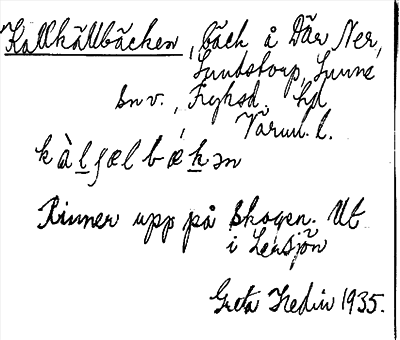 Kallkällbäcken, bäck å Där Ner,
Lundstorp, Sunne
sn v., Fryksd. hd
Värml. l.
kàlʃælbækən
Rinner upp på Skogen. Ut
i Lersjön
Greta Hedin 1935.